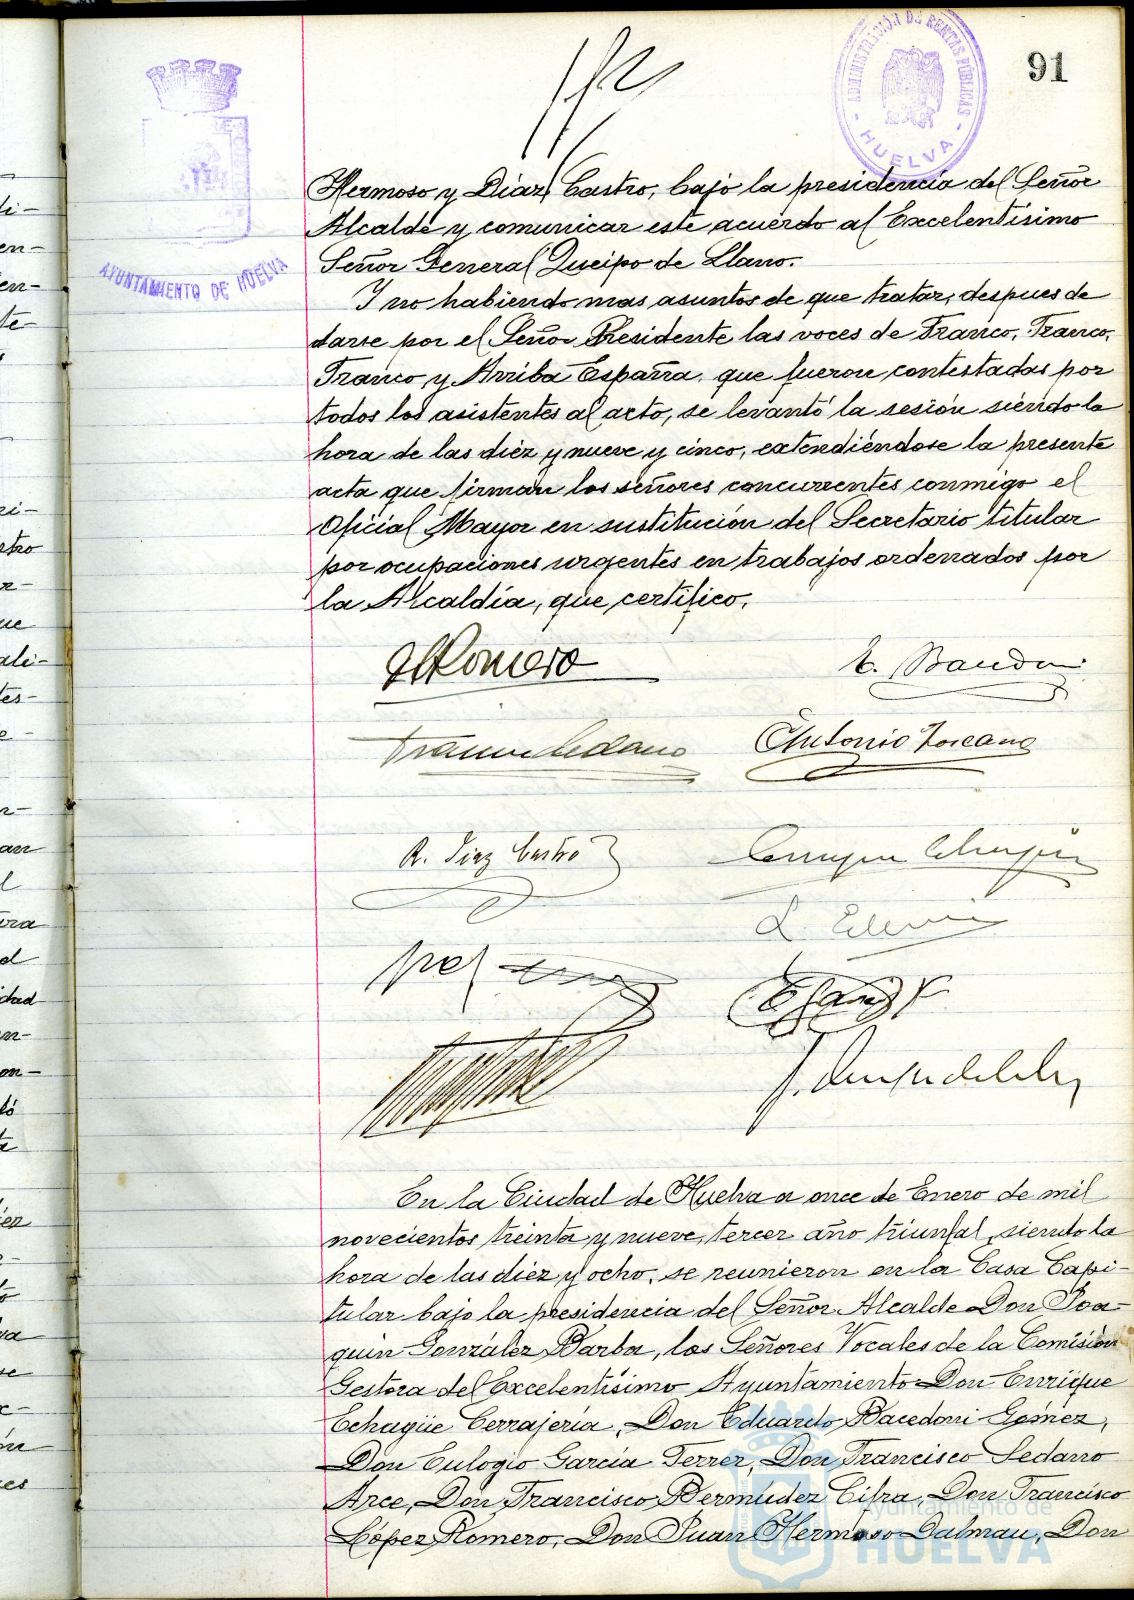 91
ADMINISTRACIÓN DE RENTAS PÚBLICAS
- HUELVA -
AYUNTAMIENTO DE HUELVA
Hermoso y Diaz Castro, bajo la presidencia del Señor
Alcalde y comunicar este acuerdo al Excelentísimo
Señor General Queipo de Llano.
Y no habiendo mas asuntos de que tratar, despues de
darse por el Señor Presidente las voces de Franco, Franco,
Franco y Arriba España, que fueron contestadas por
todos los asistentes al acto, se levantó la sesión siendo la
hora de las diez y nueve y cinco, extendiéndose la presente
acta que firman los señores concurrentes conmigo el
Oficial Mayor en sustitución del Secretario titular
por ocupaciones urgentes en trabajos ordenados por
la Alcaldía, que certifico.
Romero
Antonio Toscano
R. Diaz Castro
En la Ciudad de Huelva a once de Enero de mil
novecientos treinta y nueve, tercer año triunfal, siendo la
hora de las diez y ocho, se reunieron en la Casa Capi-
tular bajo la presidencia del Señor Alcalde Don Joa-
quin González Barba, los Señores Vocales de la Comisión
Gestora del Excelentísimo Ayuntamiento Don Enrique
Echagüe Cerrajería, Don Eduardo Bacedoni Gómez,
Don Eulogio García Ferrer, Don Francisco Sedano
Arce, Don Francisco Bermúdez Cifra, Don Francisco
López Romero, Don Juan Hermoso Dalmau, Don
Ayuntamiento de
HUELVA